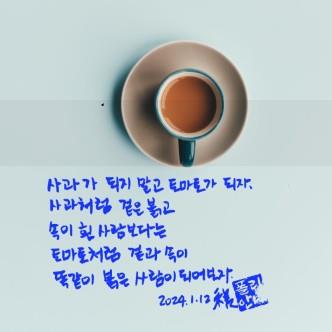 사과가 되지 말고 토마토가 되자.
사과처럼 겉은 붉고
속이 흰 사람보다는
토마토처럼 겉과 속이
똑같이 붉은 사람이 되어보자.
2024.1.12